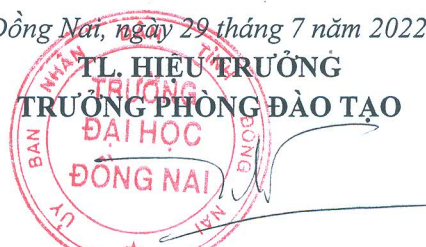 Đồng Nai, ngày 29 tháng 7 năm 2022
TL. HIỆU TRƯỞNG
TRƯỞNG PHÒNG ĐÀO TẠO
ỦY BAN NHÂN DÂN TỈNH ĐỒNG NAI
TRƯỜNG
ĐẠI HỌC
ĐỒNG NAI